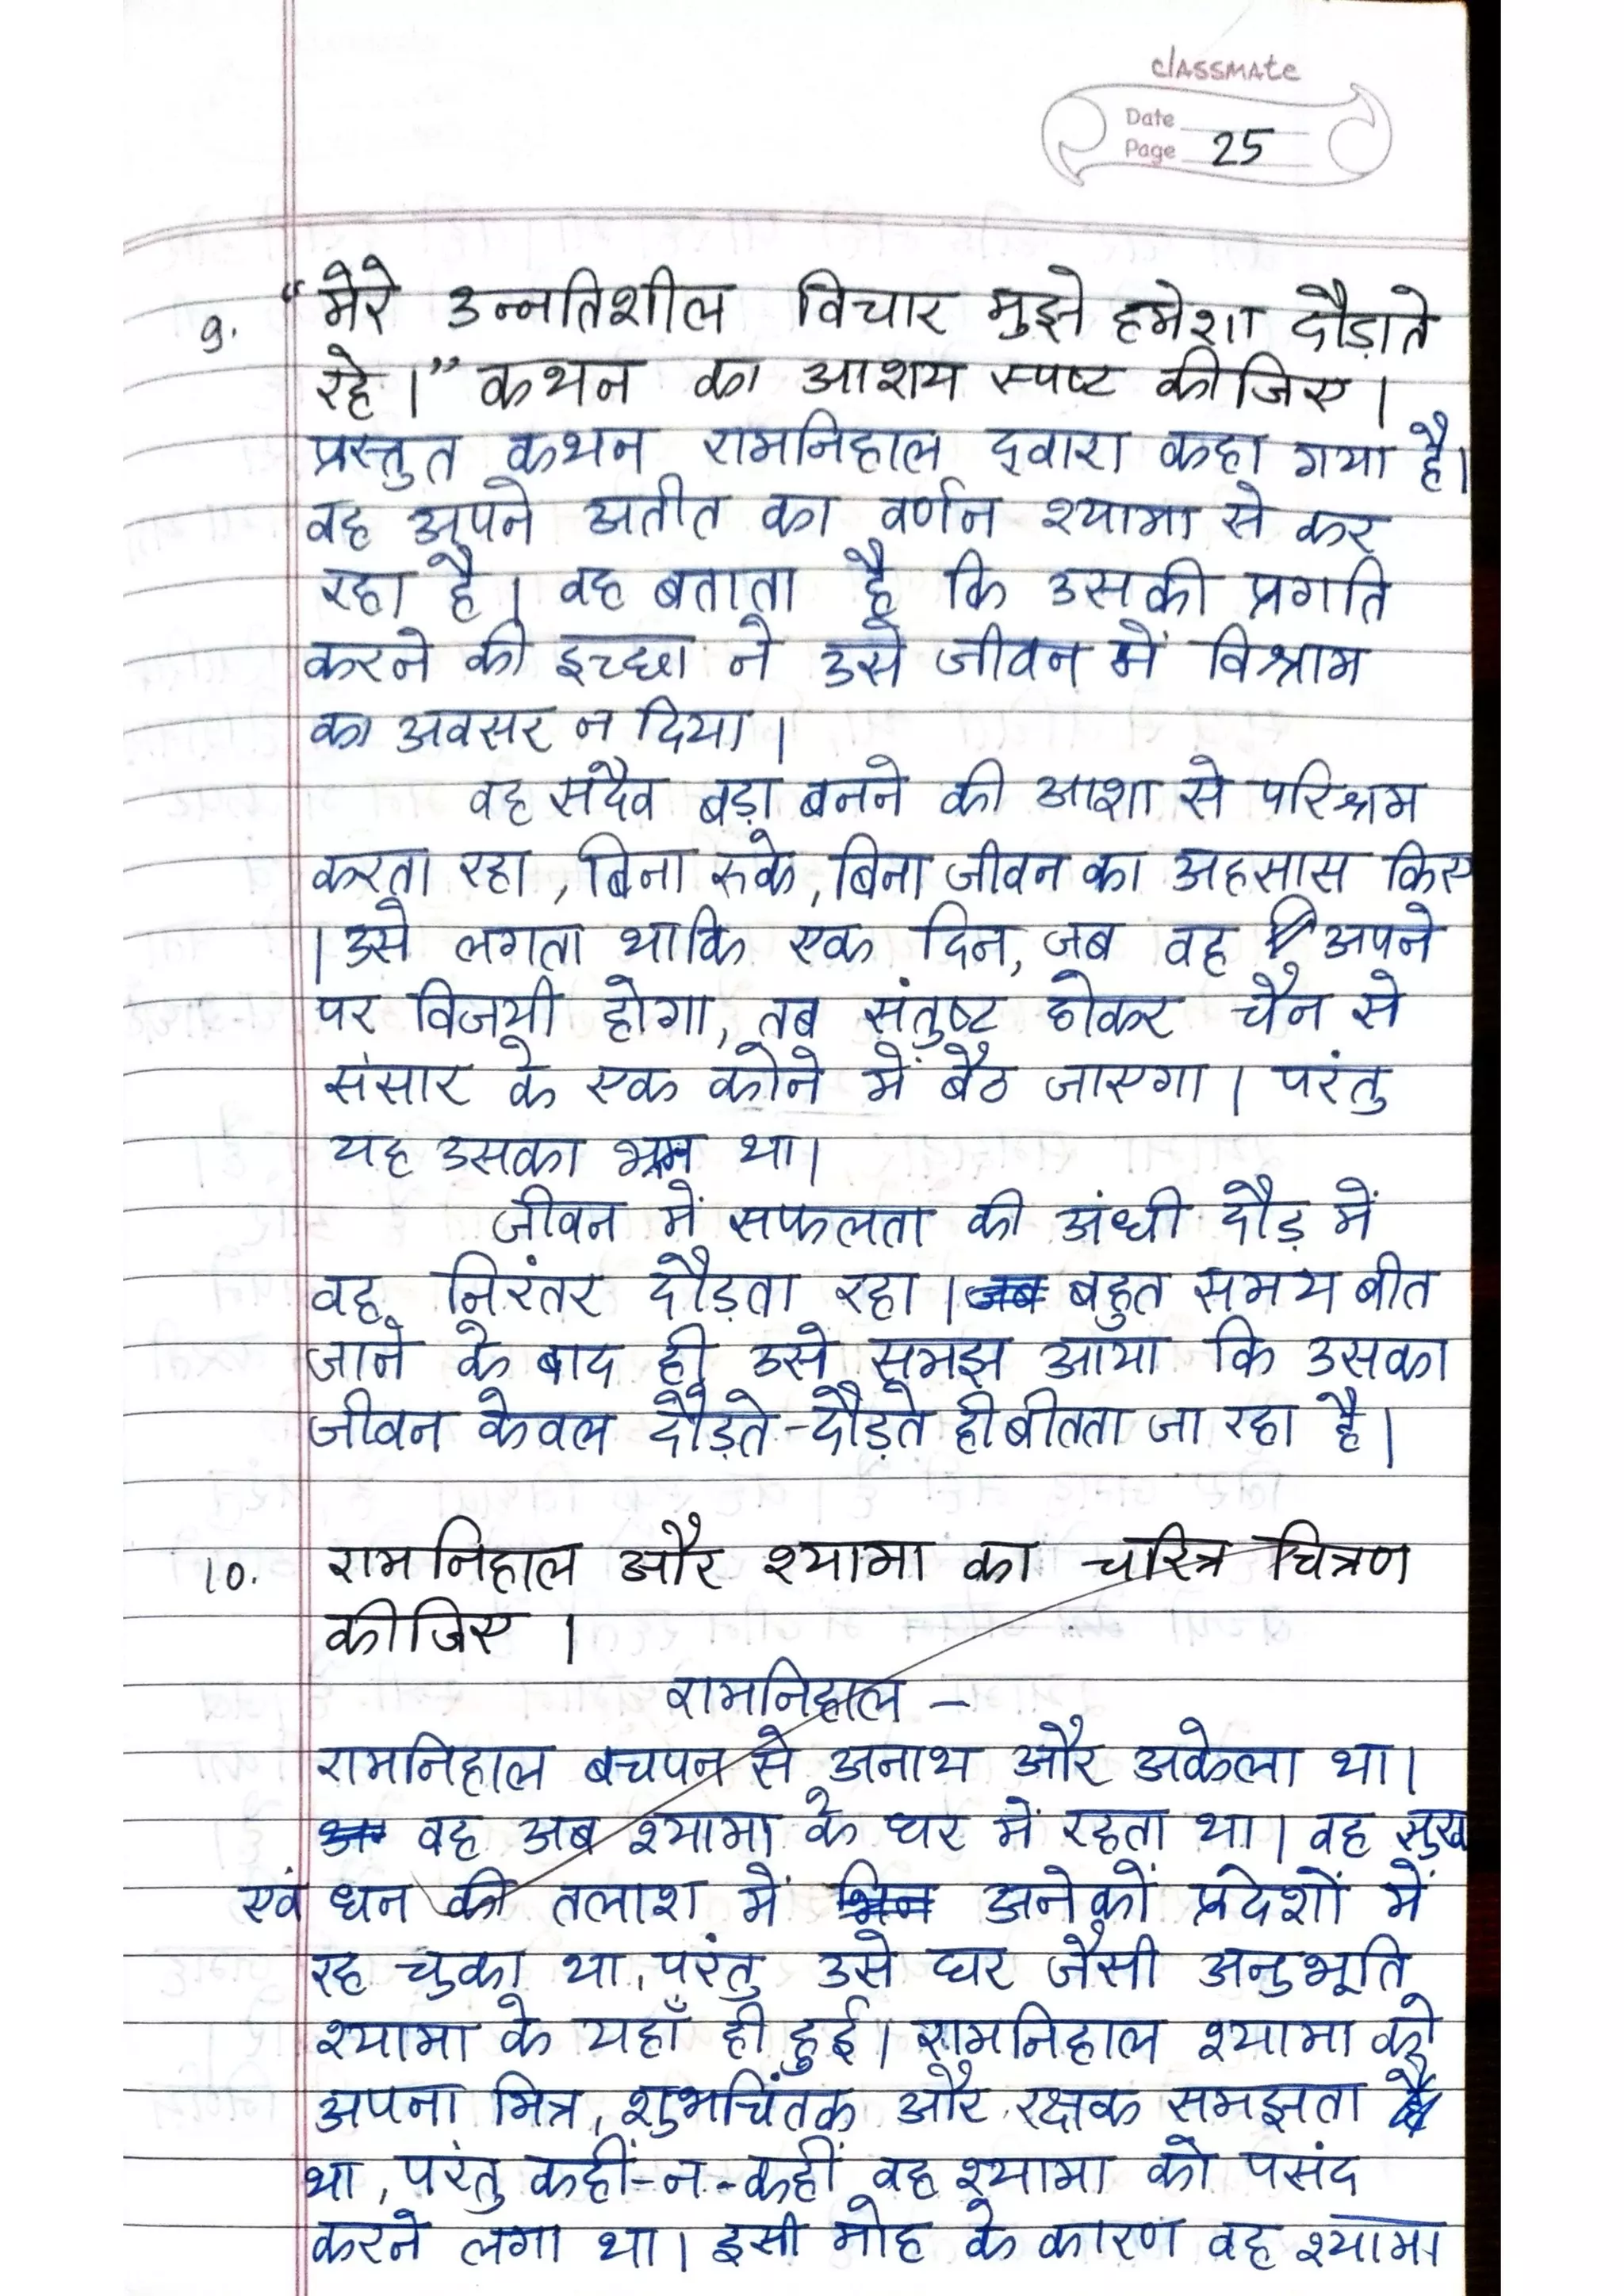 classmate
Date
Page 25
9. "मेरे उन्नतिशील विचार मुझे हमेशा दौड़ाते
रहे।" कथन का आशय स्पष्ट कीजिए।
प्रस्तुत कथन रामनिहाल द्वारा कहा गया है।
वह अपने अतीत का वर्णन श्यामा से कर
रहा है। वह बताता है कि उसकी प्रगति
करने की इच्छा ने उसे जीवन में विश्राम
का अवसर न दिया।
वह सदैव बड़ा बनने की आशा से परिश्रम
करता रहा, बिना रुके, बिना जीवन का अहसास किए
। उसे लगता था कि एक दिन, जब वह अपने
पर विजयी होगा, तब संतुष्ट होकर चैन से
संसार के एक कोने में बैठ जाएगा। परंतु
यह उसका भ्रम था।
जीवन में सफलता की अंधी दौड़ में
वह निरंतर दौड़ता रहा। जब बहुत समय बीत
जाने के बाद ही उसे समझ आया कि उसका
जीवन केवल दौड़ते-दौड़ते ही बीतता जा रहा है।
10. रामनिहाल और श्यामा का चरित्र चित्रण
कीजिए।
रामनिहाल –
रामनिहाल बचपन से अनाथ और अकेला था।
वह अब श्यामा के घर में रहता था। वह सुख
एवं धन की तलाश में अनेकों प्रदेशों में
रह चुका था, परंतु उसे घर जैसी अनुभूति
श्यामा के यहाँ ही हुई। रामनिहाल श्यामा को
अपना मित्र, शुभचिंतक और रक्षक समझता
था, परंतु कहीं-न-कहीं वह श्यामा को पसंद
करने लगा था। इसी मोह के कारण वह श्यामा